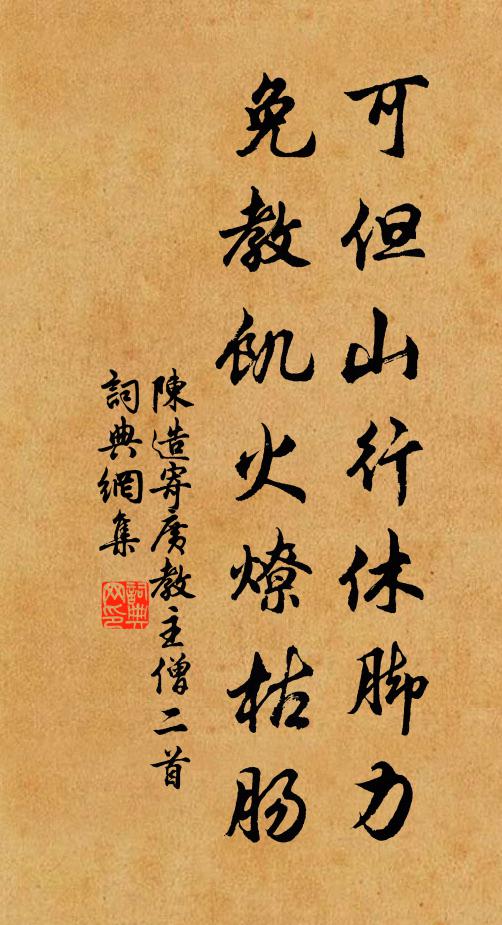 可但山行休脚力
免教飢火燎枯肠
陳造寄廣教主僧二首
詞典網集
詞典
网印